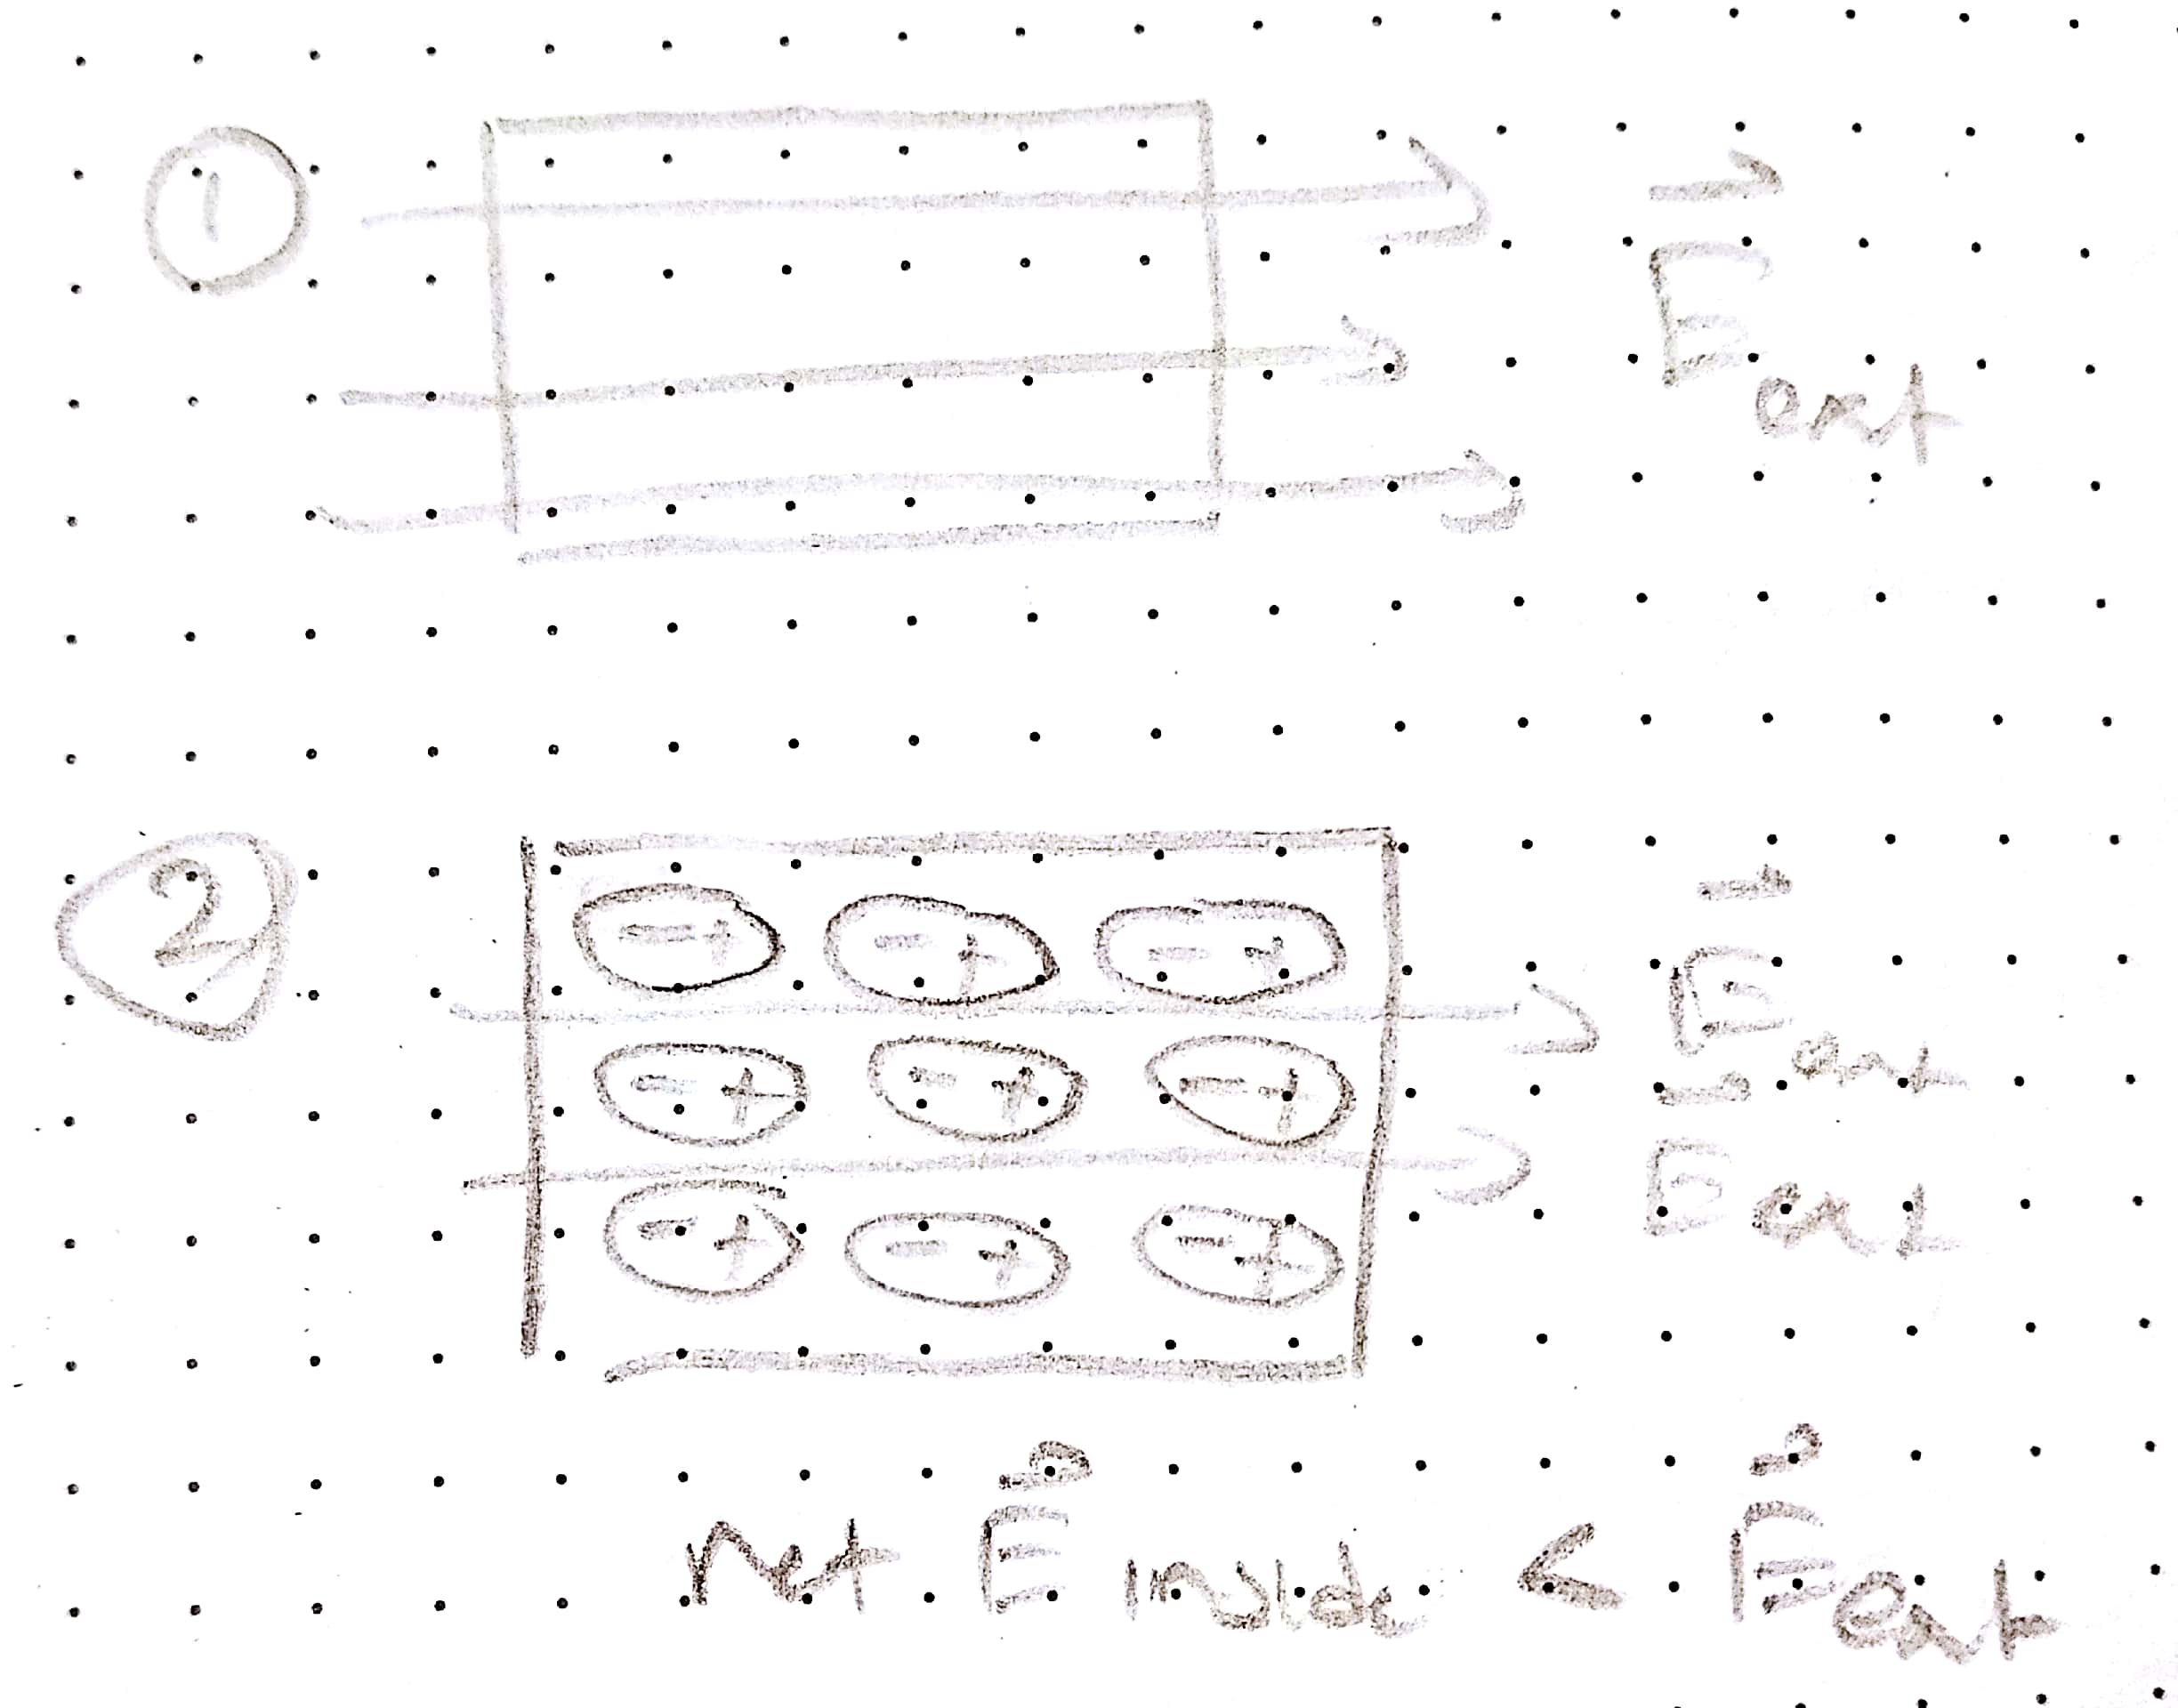 1
E⃗ext
2
- + - + - +
E⃗ext
- + - + - +
E⃗ext
- + - + - +
Net E⃗ inside < E⃗ext